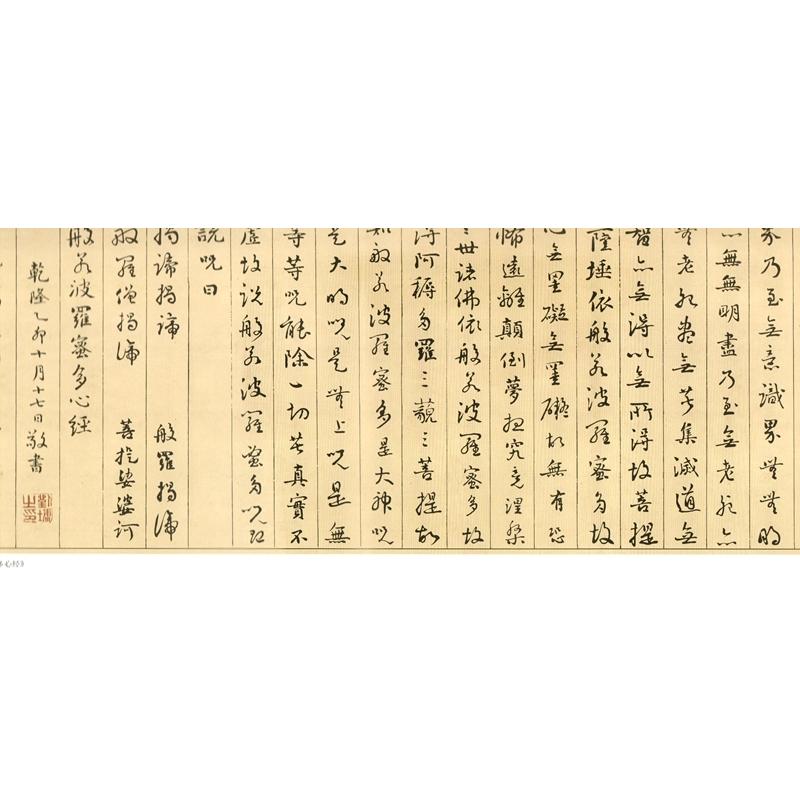 界乃至無意識界無無明
亦無無明盡乃至無老死亦
無老死盡無苦集滅道無
智亦無得以無所得故菩提
薩埵依般若波羅蜜多故
心無罣礙無罣礙故無有恐
怖遠離顛倒夢想究竟涅槃
三世諸佛依般若波羅蜜多故
得阿耨多羅三藐三菩提故
知般若波羅蜜多是大神呪
是大明呪是無上呪是無
等等呪能除一切苦真實不
虛故說般若波羅蜜多呪即
說呪曰
揭諦揭諦 般羅揭諦
般羅僧揭諦 菩提娑婆訶
般若波羅蜜多心經
乾隆乙卯十月十七日敬書
劉墉之印
心经》